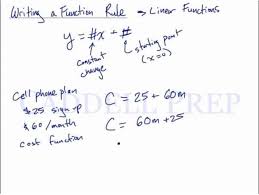 Writing a Function Rule → Linear Functions
y = #x + #
constant change
starting point
(x=0)
CADDELL PREP
Cell phone plan
$25 sign-up
$60/month
cost function
C = 25 + 60m
C = 60m + 25